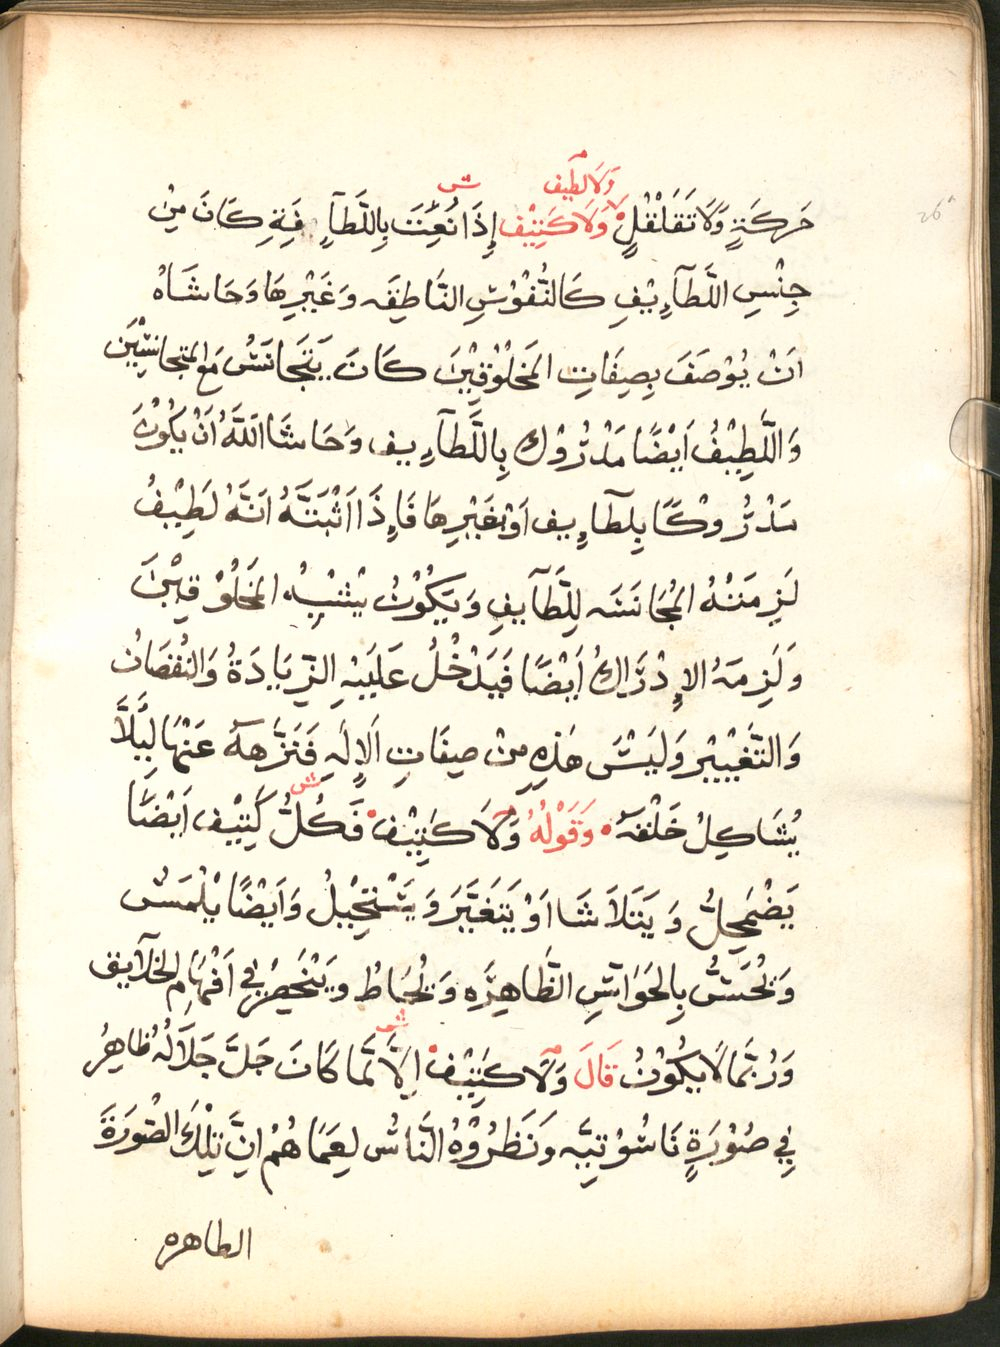 ولا لطيف
ش
حَركَةٍ وَلَا تَقَلْقُلٍ وَلَا كَثِيْف إِذَا نُعِتَ بِاللَّطَآءِفَةِ كَانَ مِنْ
26
جِنْسِ اللَّطَآءِيْفِ كَالنُّفُوْسِ النَّاطِقَه وَغَيْرِهَا وَحَاشَاهُ
اَنْ يُوْصَفَ بِصِفَاتِ المَخْلُوْقِيْنَ كَانَ يَتَجَانَسُ مَع المتجانسِيْن
وَاللَّطِيْفُ اَيْضًا مَدْرُوْك بِاللَّطآءِيف وَحَاشَا اللَّهُ اَنْ يَكُوْنَ
مَدْرُوْكًا بِلطآءِيف اَوْ بغَيْرِهَا فَاِذَا اَثْبَتَّهُ اَنَّهُ لَطِيْفُ
لَزِمَتْهُ المُجَانَسَه لِلَّطَآيفِ وَيَكُوْنُ يُشْبِهُ المَخْلُوْقِيْنَ
وَلَزِمَهُ الاِدْرَاكُ اَيْضًا فَيَدْخُلُ عَلَيْهِ الزِّيَادَةُ وَالنُّقْصَانُ
وَالتَّغْيِيْر وَلَيْسَ هَذِهِ مِنْ صِفَاتِ اَلاِلَهِ فَنَزَّهَهُ عَنْهَا لِيَلَّا
يُشَاكِلُ خَلْقَهُ وَقَوْلُهُ وَلَا كَثِيْف فَكُلُّ كَثِيْف اَيْضًا
ش
يَضْمَحِلُّ وَيَتَلَاشَا اَوْ يَتَغَيَّرَ وَيَسْتَحِيْلُ وَاَيْضًا يُلْمَسُ
وَيُحَسُّ بِالحَوَآسِّ الظَّاهِرَه وَيُحَاطُ وَيَنْحَصِرُ فِي اَفْهَامِ الخَلَآيق
وَرُبَّمَا لَا يَكُوْنُ قَالَ وَلَا كَثِيْف اِلَّا لَمَّا كَانَ جَلَّ جَلَالُهُ ظَاهِرُ
ش
فِي صُوْرَةٍ نَاسُوْتِيَّه وَنَظَرُوْهُ النَّاسُ لِعَمَاهُمْ انَّ تِلْكَ الصُّوْرَةَ
الطاهره